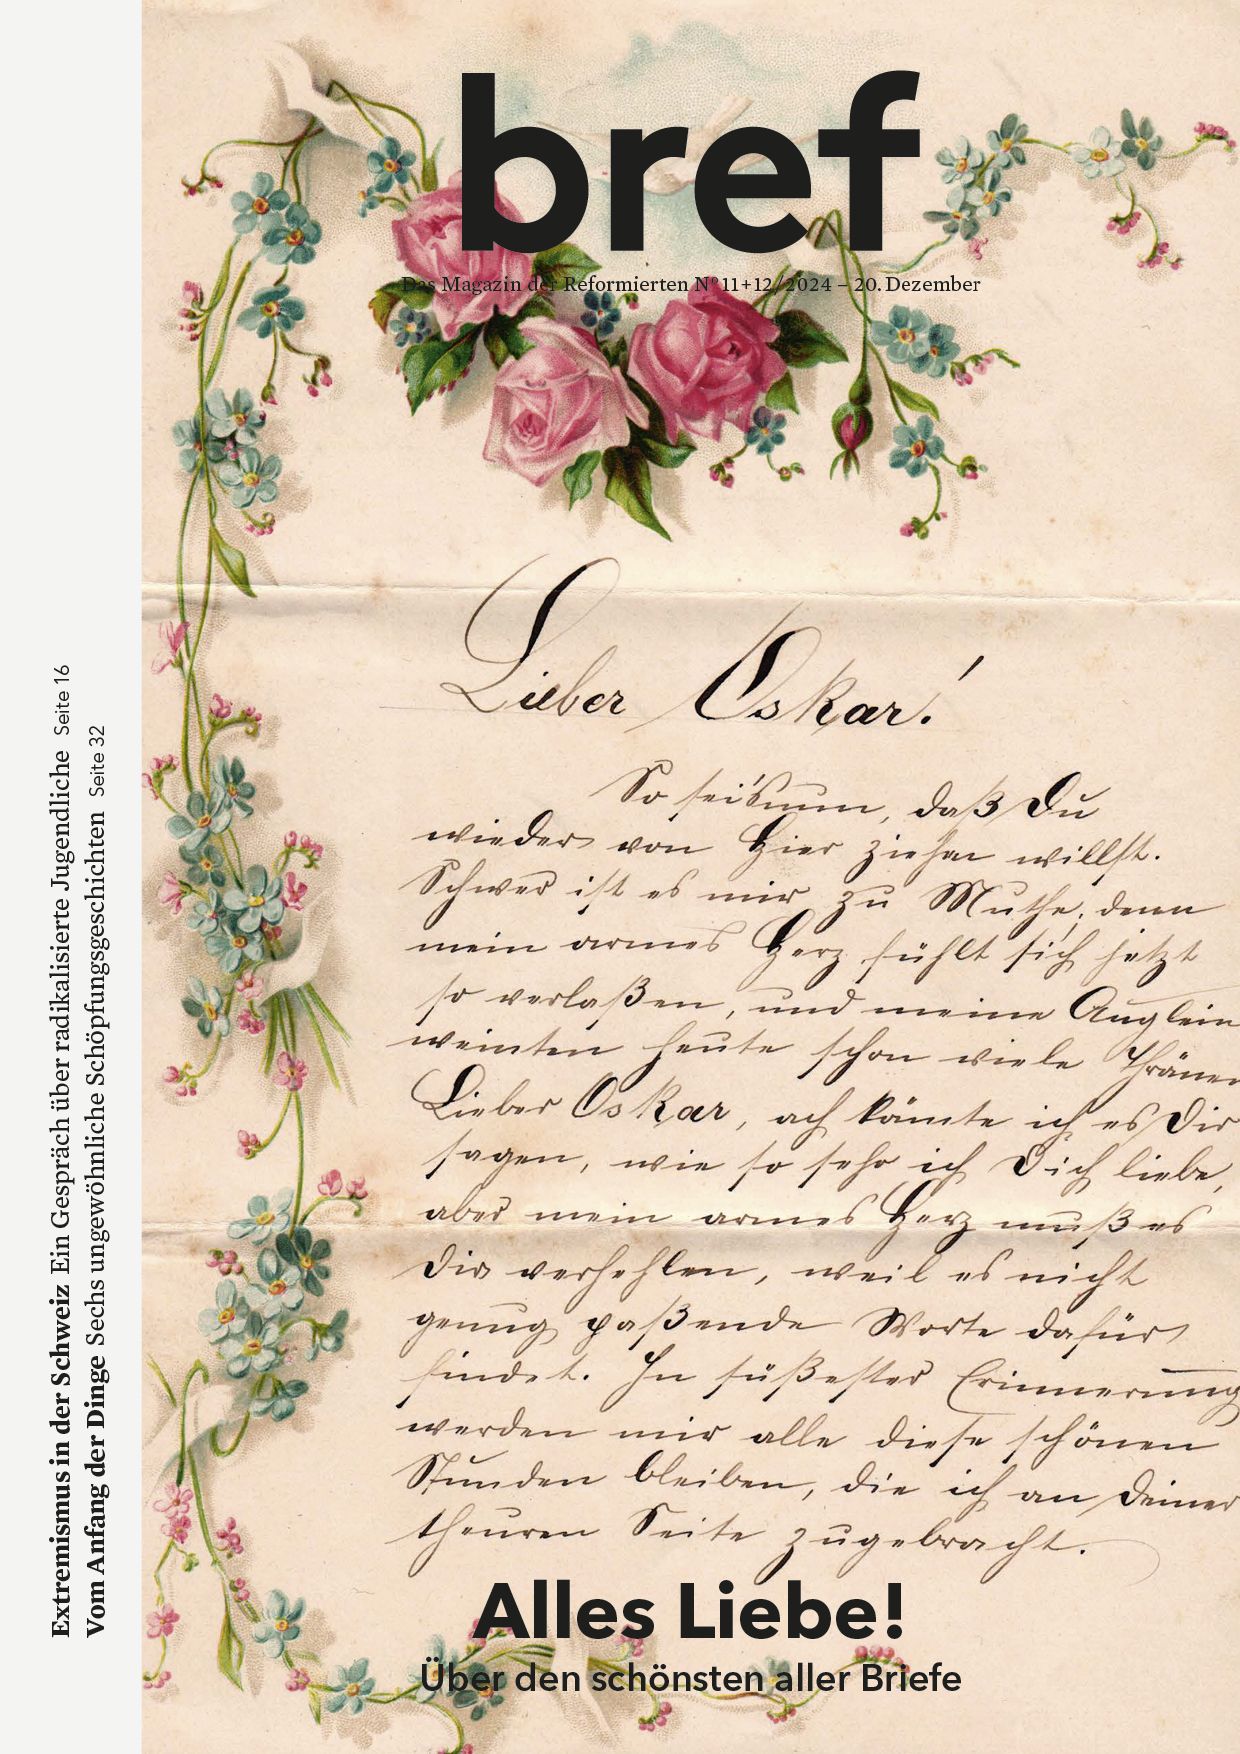 bref
Das Magazin der Reformierten Nº 11+12/2024 – 20. Dezember
Extremismus in der Schweiz Ein Gespräch über radikalisierte Jugendliche Seite 16
Vom Anfang der Dinge Sechs ungewöhnliche Schöpfungsgeschichten Seite 32
Lieber Oskar!
So sei's nun, daß Du
wieder von hier ziehen willst.
Schwer ist es mir zu Muthe, denn
mein armes Herz fühlt sich jetzt
so verlaßen, und meine Äuglein
weinten heute schon viele Thränen
Lieber Oskar, ach könnte ich es Dir
sagen, wie so sehr ich Dich liebe,
aber mein armes Herz muß es
Dir verhehlen, weil es nicht
genug paßende Worte dafür
findet. In süßester Erinnerung
werden mir alle diese schönen
Stunden bleiben, die ich an Deiner
theuren Seite zugebracht.
Alles Liebe!
Über den schönsten aller Briefe